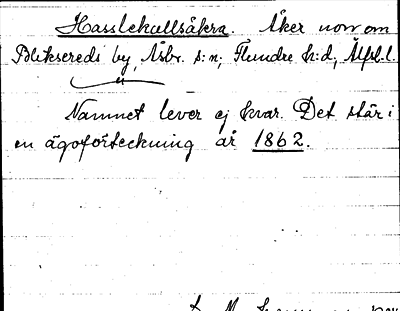 Hasslekullsåkra. Åker norr om
Bliksereds by, Åsbr. s:n; Flundre h:d, Älfsb. l.
Namnet lever ej kvar. Det står i
en ägoförteckning år 1862.